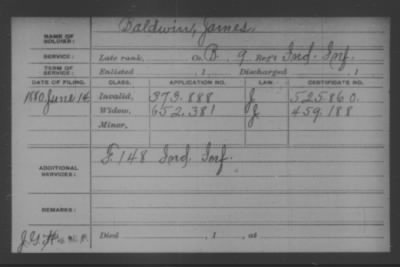 NAME OF SOLDIER: Baldwin, James.
SERVICE: Late rank, Co. B. 9 Reg't Ind. Inf.
TERM OF SERVICE: Enlisted , 1 Discharged , 1
DATE OF FILING. CLASS. APPLICATION NO. LAW. CERTIFICATE NO.
1880, June 14 Invalid, 373.888 J 525.860.
Widow, 652.381 J 459.188
Minor,
ADDITIONAL SERVICES: F 148 Ind. Inf.
REMARKS:
Died , 1 , at